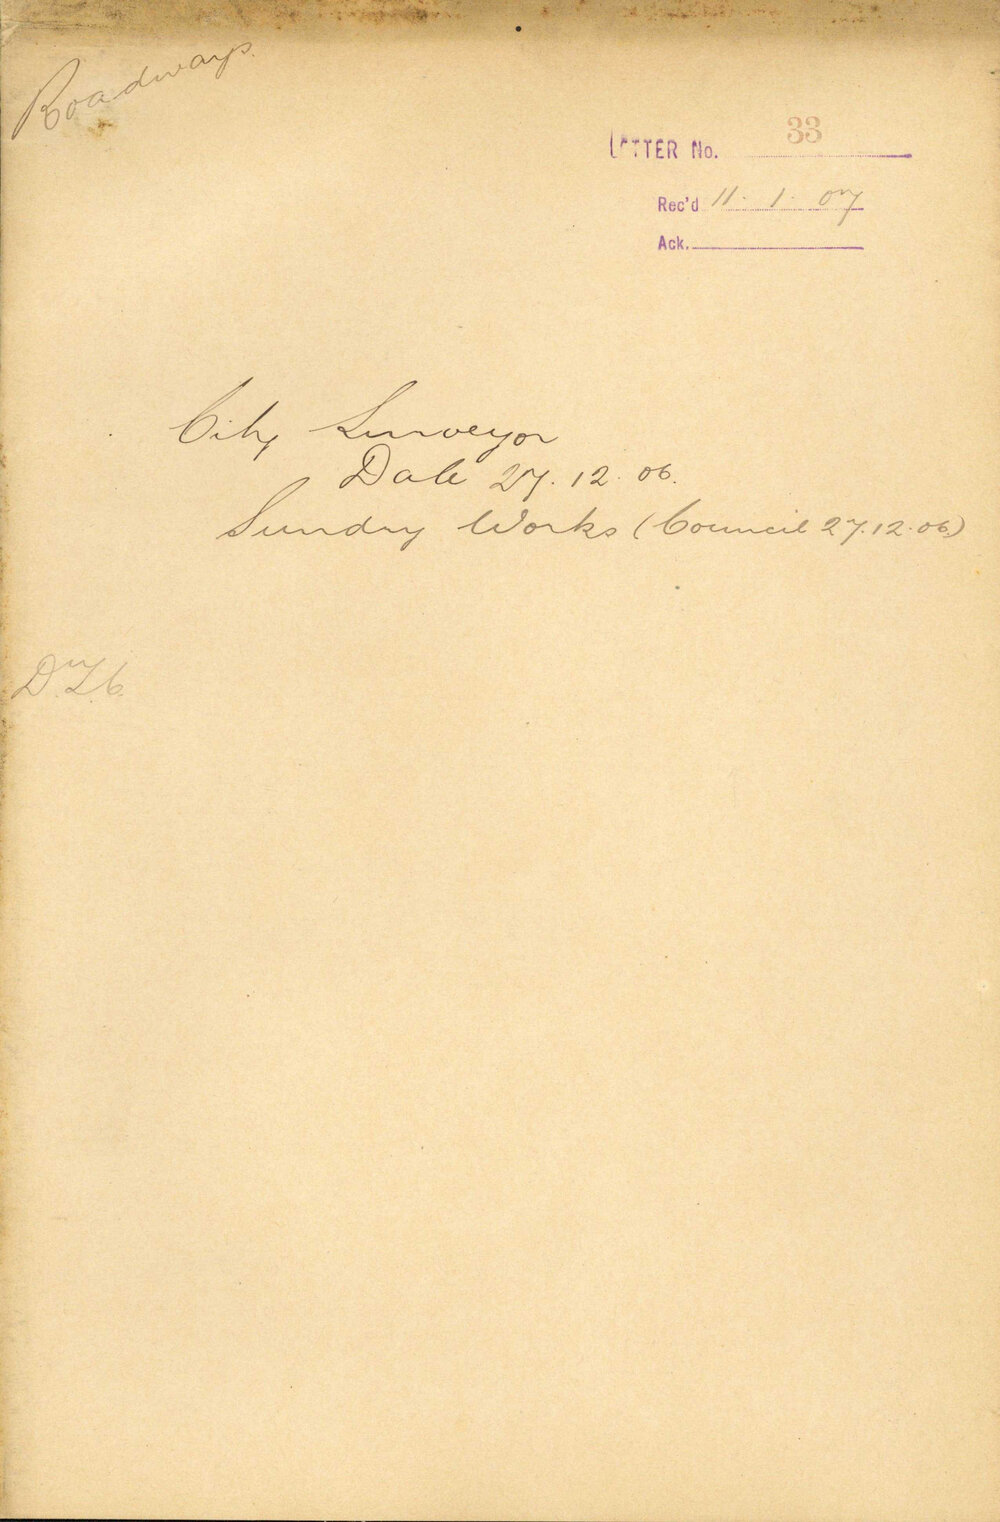 Roadways.
LETTER No. 33
Rec'd 11. 1. 07
Ack.
City Surveyor
Date 27.12.06.
Sundry Works (Council 27.12.06)